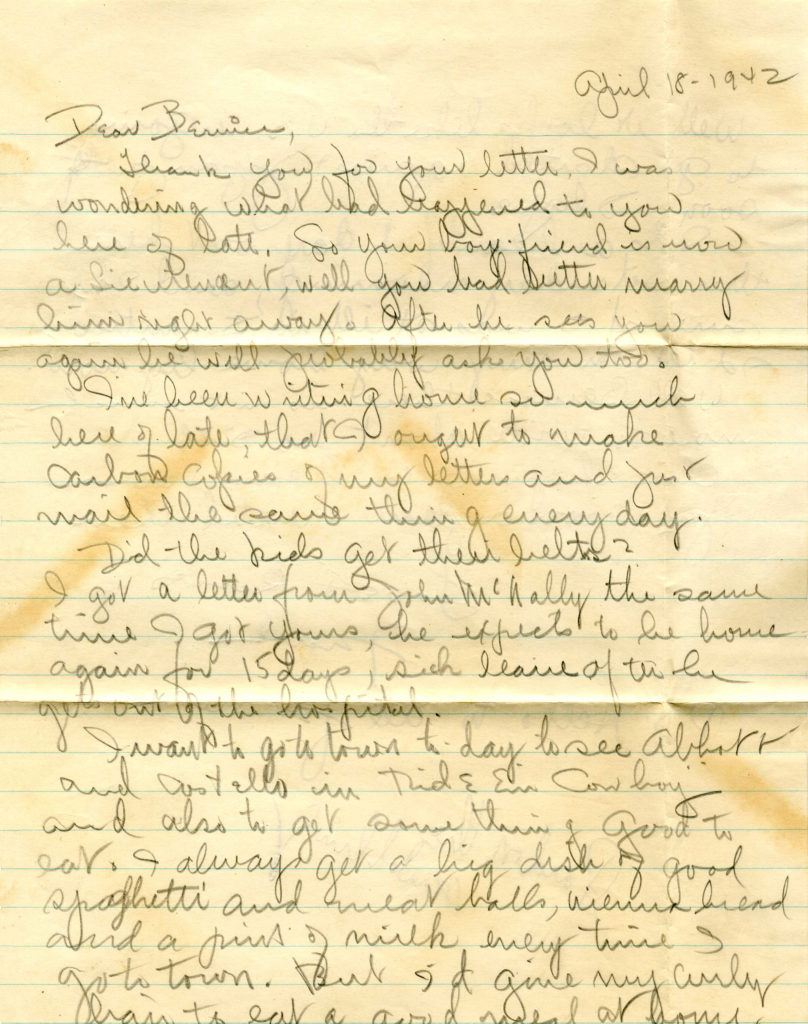 April 18-1942
Dear Bernice,
Thank you for your letter, I was
wondering what had happened to you
here of late. So your boy-friend is now
a Lieutenant, well you had better marry
him right away. After he sees you
again he will probably ask you too.
I've been writing home so much
here of late, that I ought to make
carbon copies of my letters and just
mail the same thing every day.
Did the kids get their belts?
I got a letter from John McNally the same
time I got yours, he expects to be home
again for 15 days, sick leave after he
gets out of the hospital.
I want to go to town to-day to see Abbott
and Costello in "Ride Em Cowboy"
and also to get something good to
eat. I always get a big dish of good
spaghetti and meat balls, vienna bread
and a pint of milk every time I
go to town. But I'd give my curly
hair to eat a good meal at home.